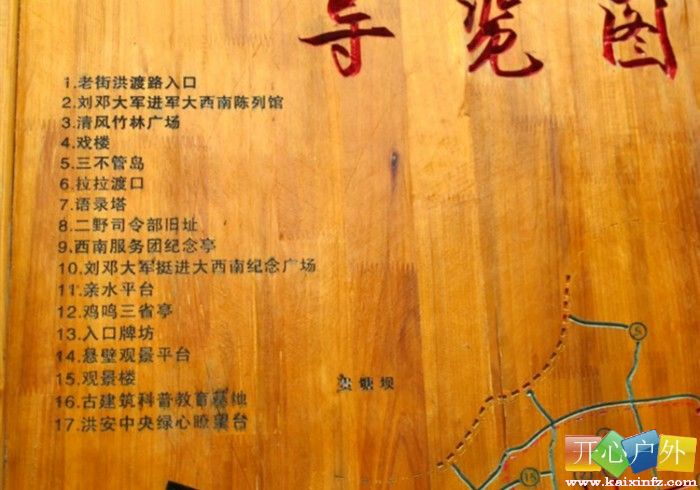 导览图
1.老街洪渡路入口
2.刘邓大军进军大西南陈列馆
3.清风竹林广场
4.戏楼
5.三不管岛
6.拉拉渡口
7.语录塔
8.二野司令部旧址
9.西南服务团纪念亭
10.刘邓大军挺进大西南纪念广场
11.亲水平台
12.鸡鸣三省亭
13.入口牌坊
14.悬壁观景平台
15.观景楼
16.古建筑科普教育基地
17.洪安中央绿心瞭望台
5
15
开心户外
www.kaixinfz.com